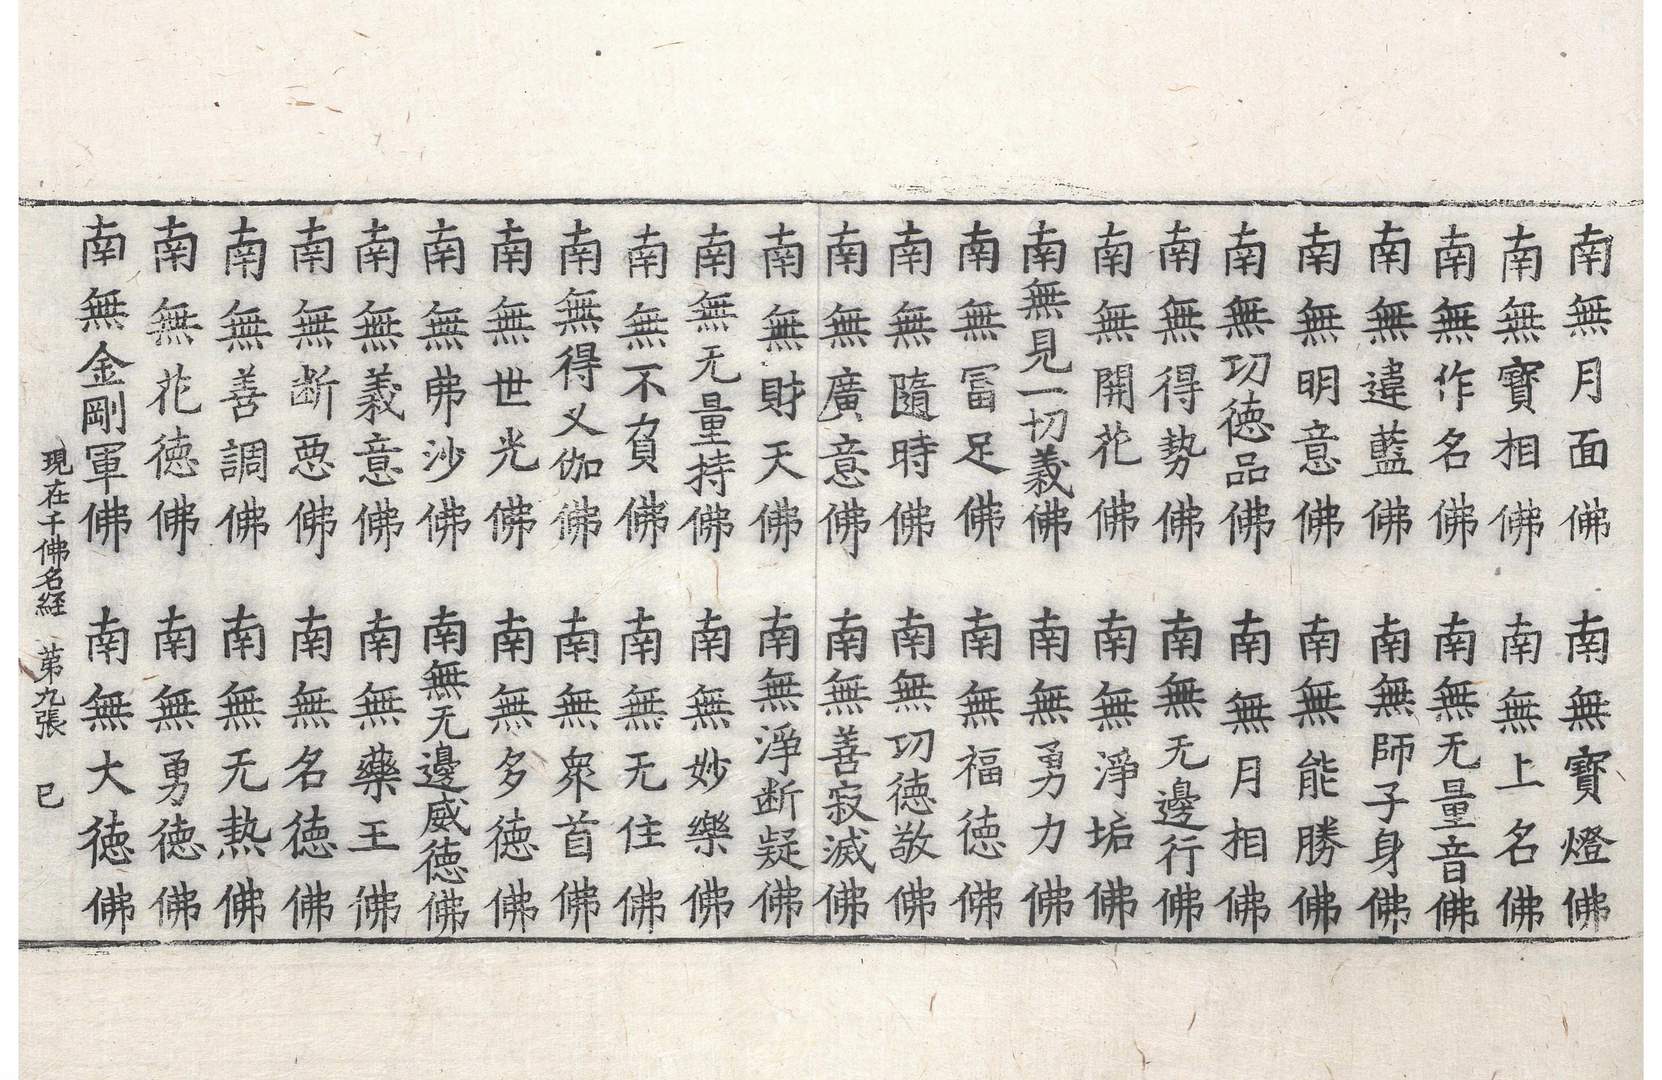 南無月面佛　南無寶燈佛
南無寶相佛　南無上名佛
南無作名佛　南無无量音佛
南無違藍佛　南無師子身佛
南無明意佛　南無能勝佛
南無功徳品佛　南無月相佛
南無得勢佛　南無无邊行佛
南無開花佛　南無淨垢佛
南無見一切義佛　南無勇力佛
南無冨足佛　南無福徳佛
南無隨時佛　南無功徳敬佛
南無廣意佛　南無善寂滅佛
南無財天佛　南無淨断疑佛
南無无量持佛　南無妙樂佛
南無不負佛　南無无住佛
南無得叉伽佛　南無衆首佛
南無世光佛　南無多徳佛
南無弗沙佛　南無无邊威徳佛
南無義意佛　南無藥王佛
南無断惡佛　南無名徳佛
南無善調佛　南無无热佛
南無花徳佛　南無勇徳佛
南無金剛軍佛　南無大徳佛
現在千佛名経　第九張　已